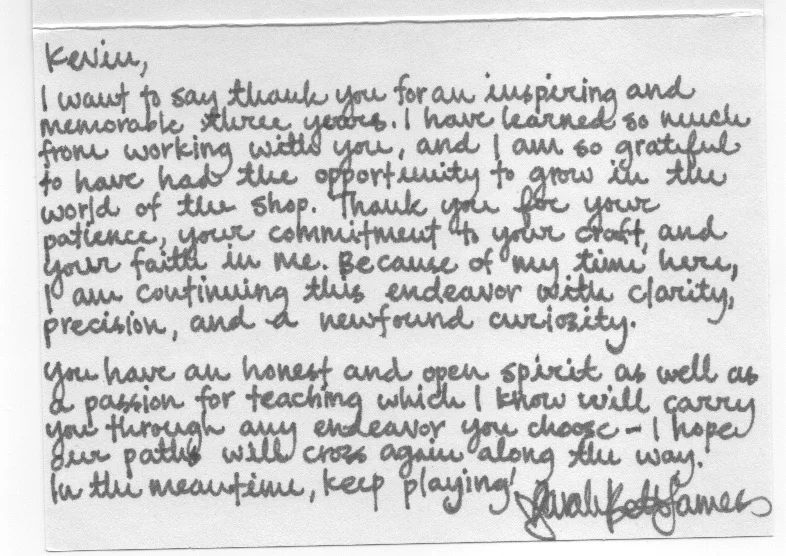 Kevin,
I want to say thank you for an inspiring and
memorable three years. I have learned so much
from working with you, and I am so grateful
to have had the opportunity to grow in the
world of the shop. Thank you for your
patience, your commitment to your craft, and
your faith in me. Because of my time here,
I am continuing this endeavor with clarity,
precision, and a newfound curiosity.
You have an honest and open spirit as well as
a passion for teaching which I know will carry
you through any endeavor you choose - I hope
our paths will cross again along the way.
In the meantime, keep playing!
Sarah